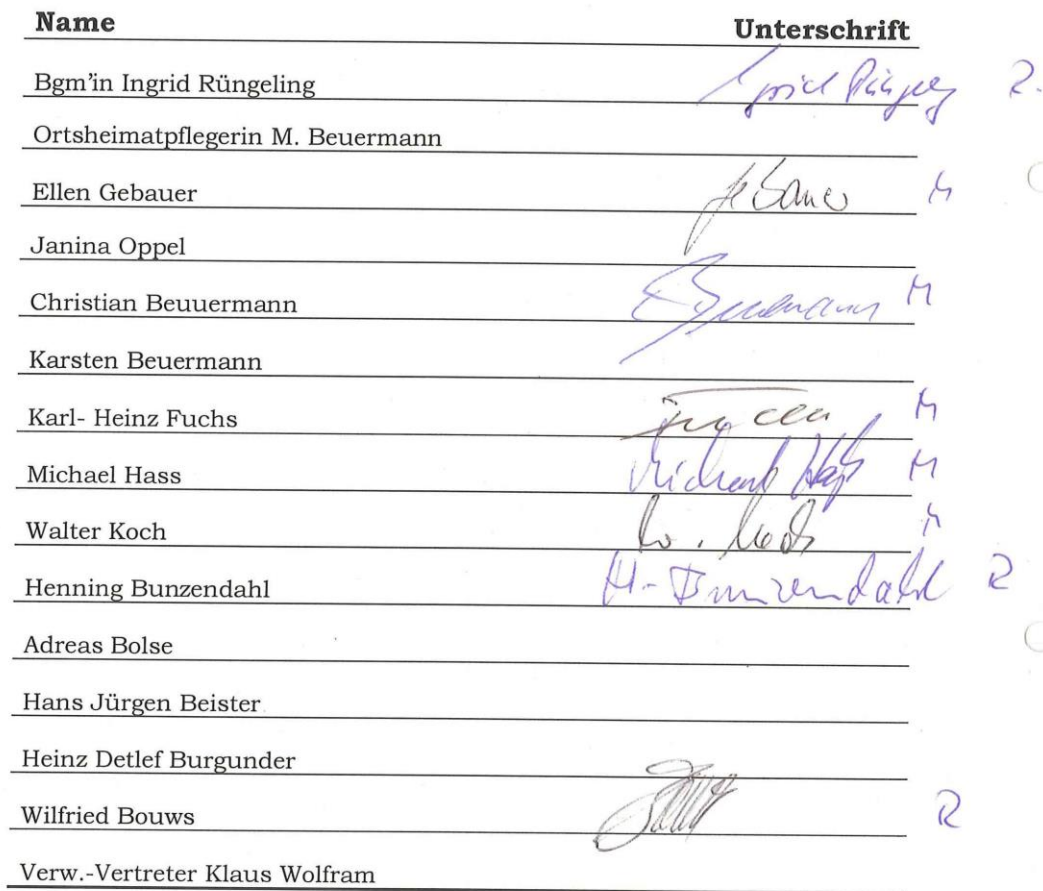 Name Unterschrift
Bgm'in Ingrid Rüngeling Ingrid Rüngeling R.
Ortsheimatpflegerin M. Beuermann
Ellen Gebauer Gebauer M
Janina Oppel
Christian Beuuermann Beuermann M
Karsten Beuermann
Karl- Heinz Fuchs M
Michael Hass Michael Haß M
Walter Koch W. Koch M
Henning Bunzendahl H. Bunzendahl R
Adreas Bolse
Hans Jürgen Beister
Heinz Detlef Burgunder
Wilfried Bouws R
Verw.-Vertreter Klaus Wolfram